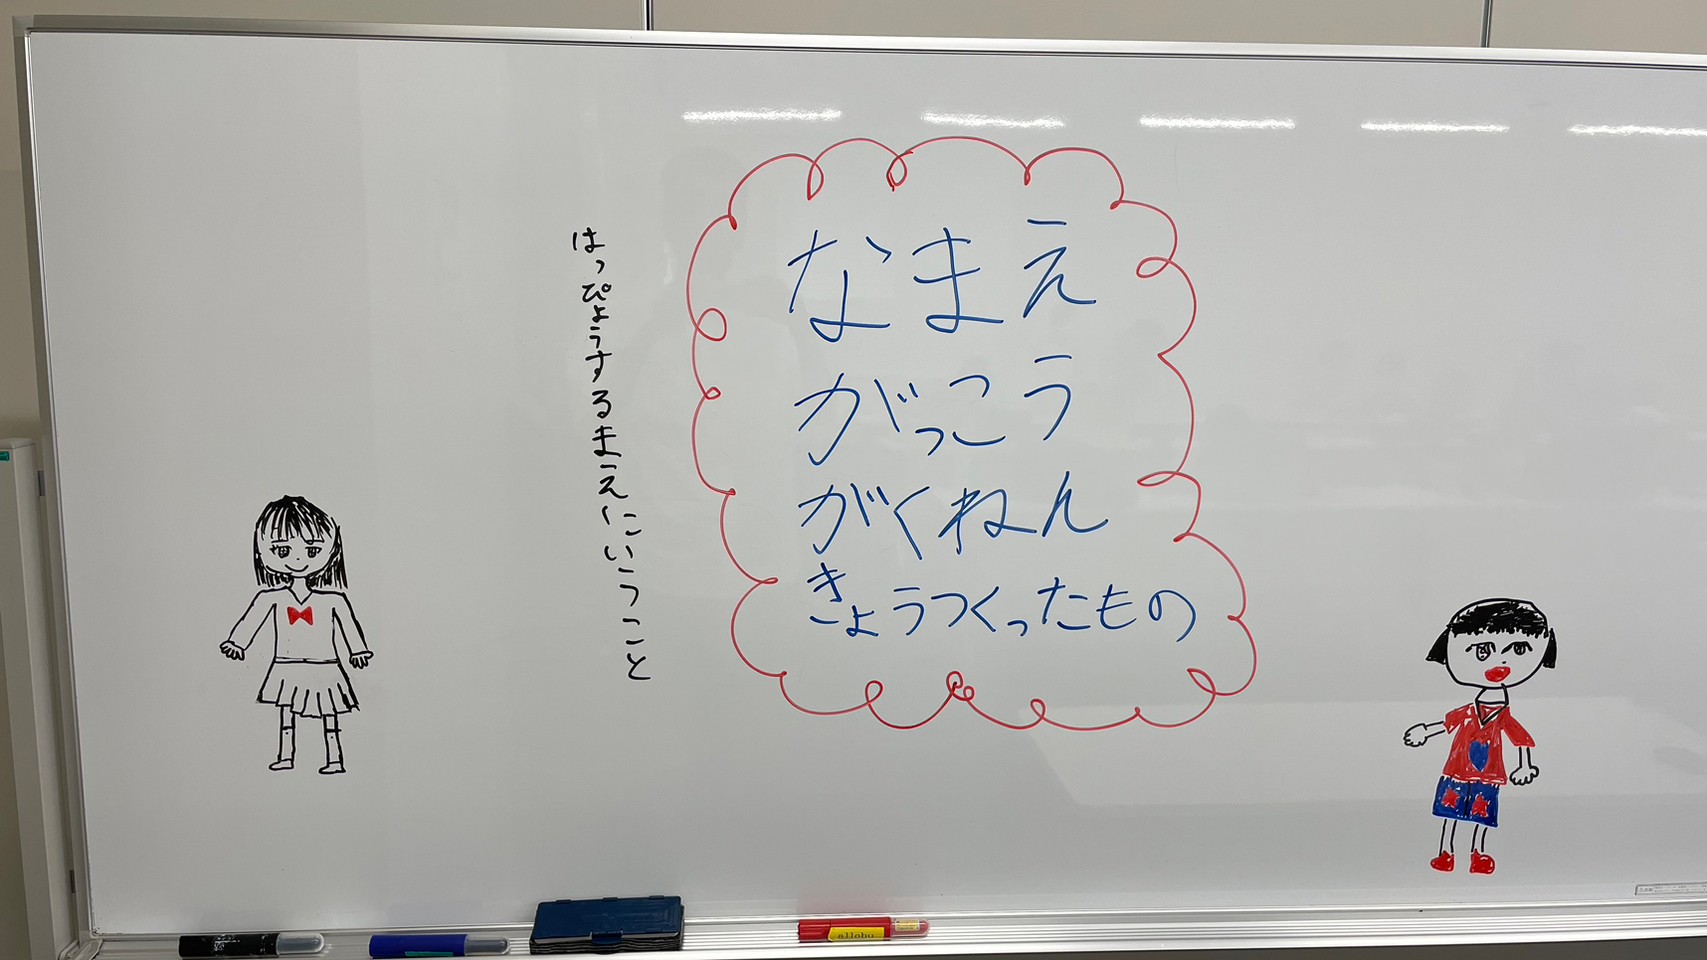 はっぴょうするまえにいうこと
なまえ
がっこう
がくねん
きょうつくったもの